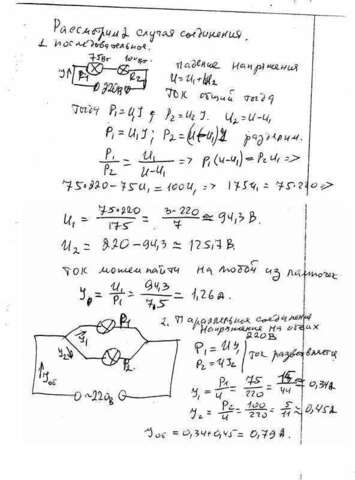 Рассмотрим 2 случая соединения.
1. последовательное.
75Вт 100Вт
P₁ P₂
~220В
падение напряжения
U = U₁ + U₂
ток общий тогда
Тогда P₁ = U₁J; P₂ = U₂J. U₂ = U - U₁
P₁ = U₁J; P₂ = (U - U₁)J разделим.
P₁/P₂ = U₁/(U - U₁) => P₁(U - U₁) = P₂U₁ =>
75·220 - 75U₁ = 100U₁ => 175U₁ = 75·220 =>
U₁ = 75·220/175 = 3·220/7 ≈ 94,3 В.
U₂ = 220 - 94,3 ≈ 125,7 В.
ток можем найти на любой из лампочек
Jр = U₁/P₁ = 94,3/7,5 ≈ 1,26 А.
2. Параллельное соединение
Напряжение на обоих
220В
P₁ = UJ₁
P₂ = UJ₂
ток разветвляется
J₁ = P₁/U = 75/220 = 15/44 ≈ 0,34А
J₂ = P₂/U = 100/220 = 5/11 ≈ 0,45А
Jоб = 0,34 + 0,45 = 0,79 А.
J₁ P₁
J₂ P₂
Jоб
~220В